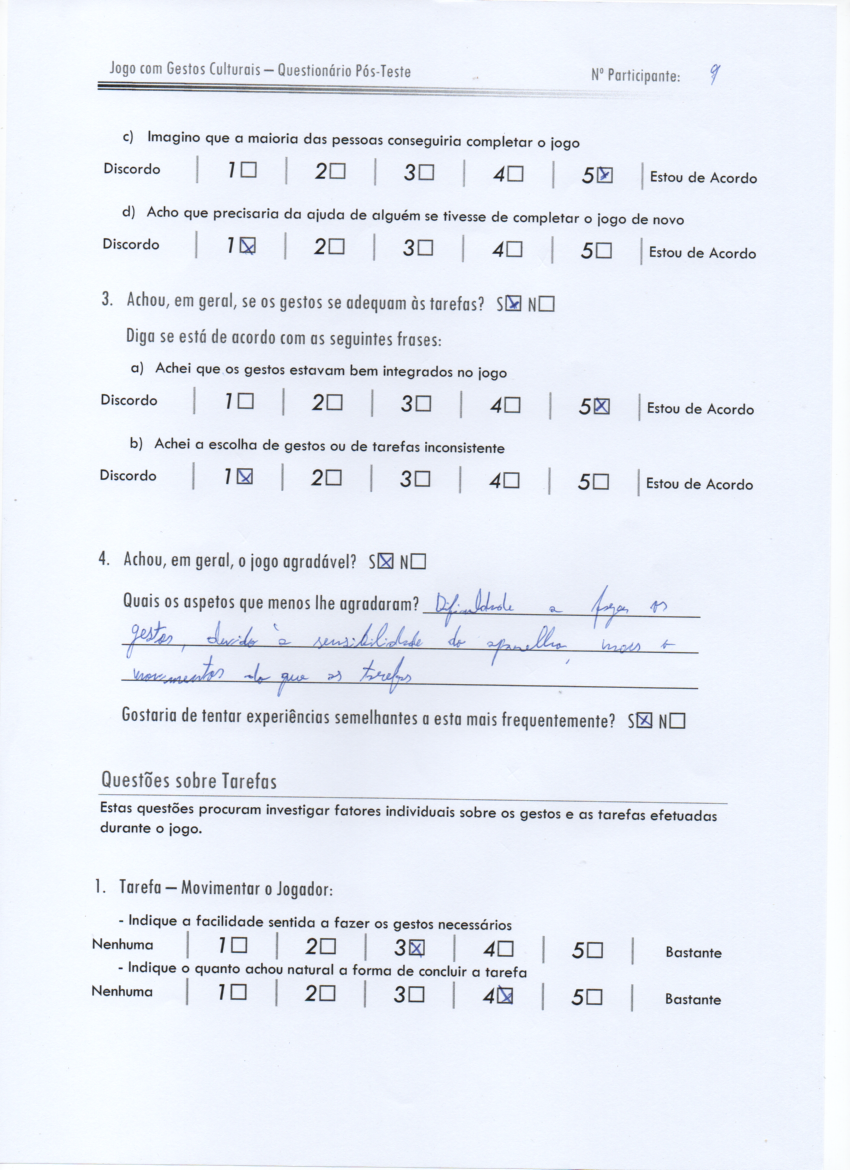 Jogo com Gestos Culturais – Questionário Pós-Teste Nº Participante: 9
c) Imagino que a maioria das pessoas conseguiria completar o jogo
Discordo | 1☐ | 2☐ | 3☐ | 4☐ | 5☒ | Estou de Acordo
d) Acho que precisaria da ajuda de alguém se tivesse de completar o jogo de novo
Discordo | 1☒ | 2☐ | 3☐ | 4☐ | 5☐ | Estou de Acordo
3. Achou, em geral, se os gestos se adequam às tarefas? S☒ N☐
Diga se está de acordo com as seguintes frases:
a) Achei que os gestos estavam bem integrados no jogo
Discordo | 1☐ | 2☐ | 3☐ | 4☐ | 5☒ | Estou de Acordo
b) Achei a escolha de gestos ou de tarefas inconsistente
Discordo | 1☒ | 2☐ | 3☐ | 4☐ | 5☐ | Estou de Acordo
4. Achou, em geral, o jogo agradável? S☒ N☐
Quais os aspetos que menos lhe agradaram? Dificuldade a fazer os
gestos, devido à sensibilidade do aparelho, mais
movimentos do que as tarefas
Gostaria de tentar experiências semelhantes a esta mais frequentemente? S☒ N☐
Questões sobre Tarefas
Estas questões procuram investigar fatores individuais sobre os gestos e as tarefas efetuadas
durante o jogo.
1. Tarefa – Movimentar o Jogador:
- Indique a facilidade sentida a fazer os gestos necessários
Nenhuma | 1☐ | 2☐ | 3☒ | 4☐ | 5☐ | Bastante
- Indique o quanto achou natural a forma de concluir a tarefa
Nenhuma | 1☐ | 2☐ | 3☐ | 4☒ | 5☐ | Bastante